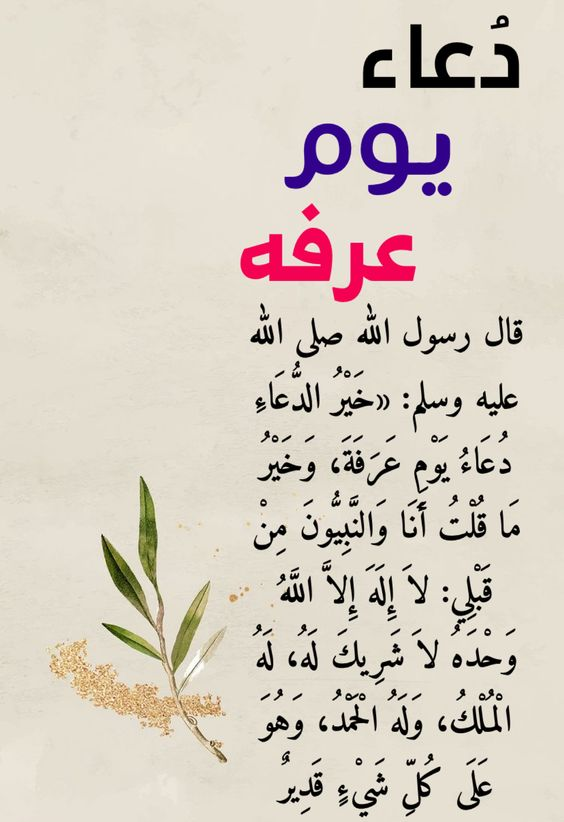 دُعاء
يوم
عرفه
قال رسول الله صلى الله
عليه وسلم: «خَيْرُ الدُّعَاءِ
دُعَاءُ يَوْمِ عَرَفَةَ، وَخَيْرُ
مَا قُلْتُ أَنَا وَالنَّبِيُّونَ مِنْ
قَبْلِي: لاَ إِلَهَ إِلاَّ اللَّهُ
وَحْدَهُ لاَ شَرِيكَ لَهُ، لَهُ
الْمُلْكُ، وَلَهُ الْحَمْدُ، وَهُوَ
عَلَى كُلِّ شَيْءٍ قَدِيرٌ